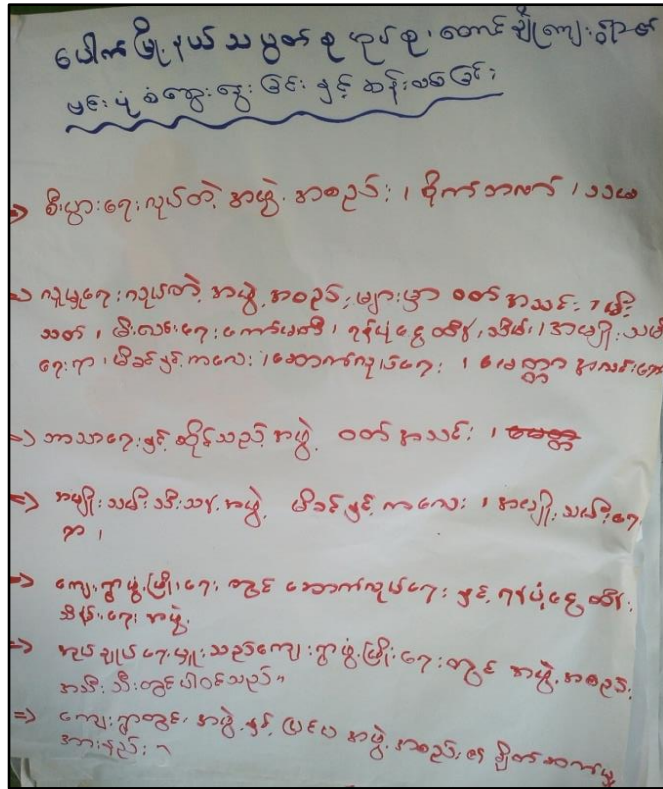 ပေါက်မြို့နယ် သမ္ဗတ်စု အုပ်စု၊ တောင်ချို ကျေးရွာ၏
ဗင်းပုံစံဆွေးနွေးခြင်းနှင့် ဆန်းစစ်ခြင်း
=> စီးပွားရေးလုပ်တဲ့ အဖွဲ့အစည်း၊ စိုက်ဘဏ်၊ သသမ
=> လူမှုရေးလုပ်တဲ့ အဖွဲ့အစည်းများမှာ ဝတ်အသင်း၊ မီး
သတ်၊ မီးလင်းရေးကော်မတီ၊ ရန်ပုံငွေထိန်းသိမ်း၊ အမျိုးသမီး
ရေးရာ၊ မိခင်နှင့်ကလေး၊ ဆောက်လုပ်ရေး၊ မေတ္တာအလင်းရောင်
=> ဘာသာရေးနှင့်ဆိုင်သည့်အဖွဲ့ ဝတ်အသင်း၊ မေတ္တာ
=> အမျိုးသမီးသီးသန့်အဖွဲ့ မိခင်နှင့်ကလေး၊ အမျိုးသမီးရေး
ရာ၊
=> ကျေးရွာဖွံ့ဖြိုးရေးတွင် ဆောက်လုပ်ရေးနှင့် ရန်ပုံငွေထိန်း
သိမ်းရေးအဖွဲ့
=> အုပ်ချုပ်ရေးမှူးသည်ကျေးရွာဖွံ့ဖြိုးရေးတွင် အဖွဲ့အစည်း
အသီးသီးတွင်ပါဝင်သည်။
=> ကျေးရွာတွင်းအဖွဲ့နှင့် ပြင်ပအဖွဲ့အစည်း၏ ချိတ်ဆက်မှု
အားနည်း။